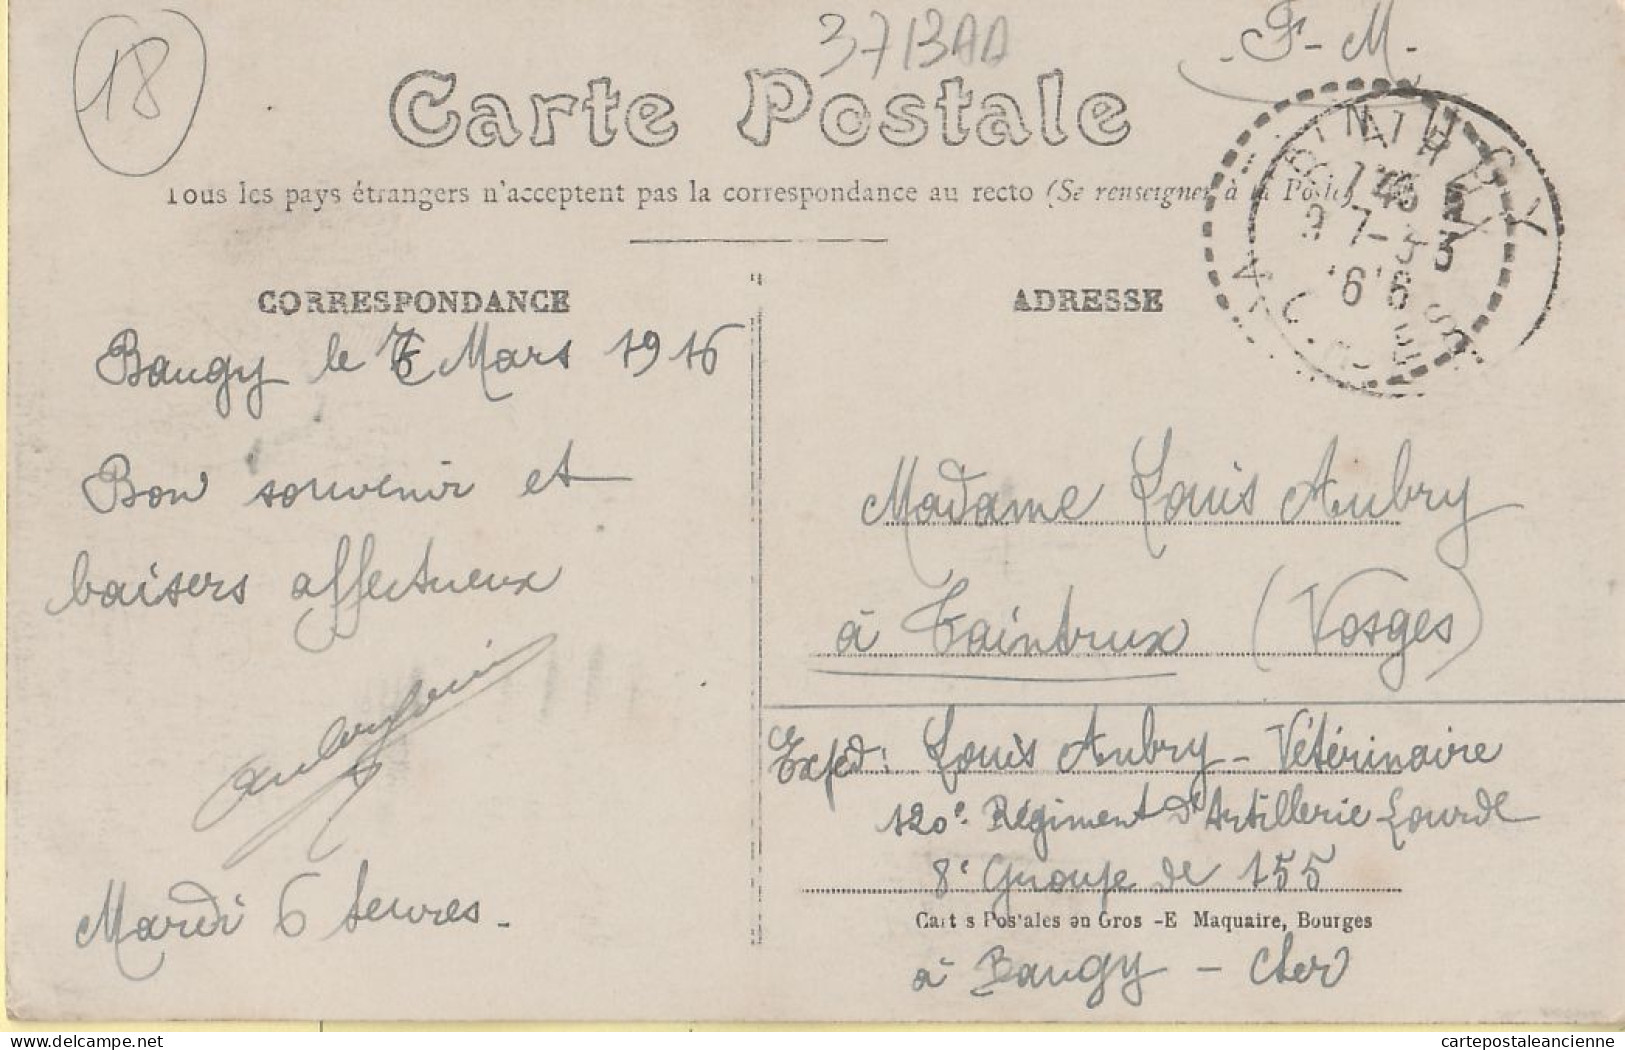 18
3713AA
F-M.
Carte Postale
Tous les pays étrangers n'acceptent pas la correspondance au recto (Se renseigner à la Poste)
CORRESPONDANCE
Baugy le 7 Mars 1916
Bon souvenir et
baisers affectueux
Mardi 6 heures.
ADRESSE
Madame Louis Aubry
à Taintrux (Vosges)
Exped: Louis Aubry - Vétérinaire
120e Régiment d'Artillerie Lourde
8e Groupe de 155
Cartes Postales en Gros - E Maquaire, Bourges
à Baugy - Cher
www.delcampe.net
cartepostaleancienne